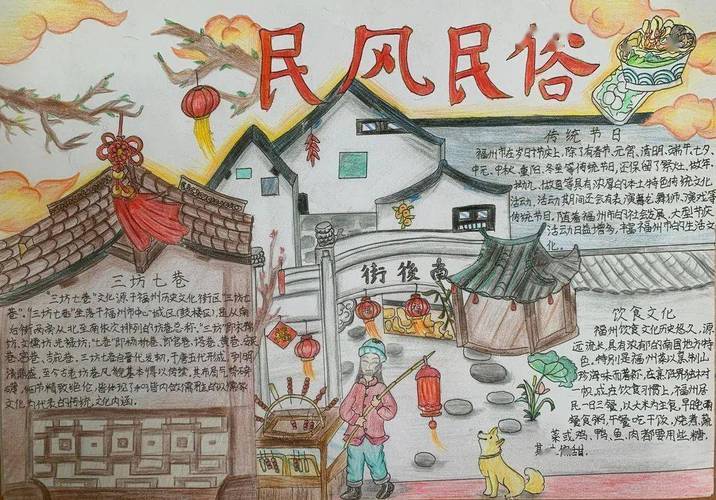 民风民俗
传统节日
福州市在岁时节庆上,除了有春节、元宵、清明、端午、七夕、
中元、中秋、重阳、冬至等传统节日,还保留了祭灶、做年、
拗九、做夏等具有浓厚的本土特色传统文化
活动。活动期间还会有去,演舞龙舞狮、演戏等
传统节目。随着福州市的社会发展,大型节庆
活动日益增多,丰富福州市的生活文
化。
南後街
三坊七巷
"三坊七巷"文化源于福州历史文化街区"三坊七
巷"。"三坊七巷"坐落于福州市中心城区(鼓楼区),是从南
后街两旁从北至南依次排列的坊巷总称。"三坊"即衣锦
坊、文儒坊、光禄坊,"七巷"即杨桥巷、郎官巷、塔巷、黄巷、安民
巷、宫巷、吉庇巷。三坊七巷自晋代发轫,于唐五代形成,到明
清鼎盛,至今古老坊巷风貌基本得以传续,其布局与结构
精致绝伦,
文化为代表的传统文化内涵。
饮食文化
福州饮食文化历史悠久,源
远流长,具有浓郁的南国地方特
色,特别是福州菜以烹制山
珍海味而著称,在烹饪界独树一
帜,在饮食习惯上,福州居
民一日三餐,以大米为主食,早晚两
餐食粥,午餐吃干饭,烧煮蔬
菜或鸡、鸭、鱼、肉都要用些糖,
其 甜。